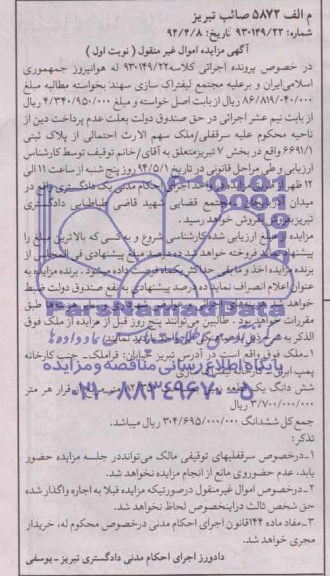 م الف ۵۸۷۲ صائب تبریز
شماره: ۹۳۰۱۴۹/۲۲ تاریخ: ۹۴/۴/۸
آگهی مزایده اموال غیر منقول ( نوبت اول )
در خصوص پرونده اجرائی کلاسه ۹۳۰۱۴۹/۲۲ له هوانیروز جمهوری
اسلامی‌ایران و برعلیه مجتمع لیفتراک سازی سهند بخواسته مطالبه مبلغ
۸۶/۸۱۹/۰۴۰/۰۰۰ ریال از بابت اصل خواسته و مبلغ ۴/۳۴۰/۹۵۰/۰۰۰ ریال
از بابت نیم عشر اجرائی در حق صندوق دولت بعلت عدم پرداخت دین از
ناحیه محکوم علیه سرقفلی/ملک سهم الارث احتمالی از پلاک ثبتی
۶۶۹۱/۱ واقع در بخش ۷ تبریزمتعلق به آقای/خانم توقیف توسط کارشناس
ارزیابی و طی مراحل قانونی در تاریخ ۹۴/۵/۱ روز پنج شنبه از ساعت ۱۱ الی
۱۲ ظهر از طریق مزایده در واحد اجرای احکام مدنی یک دادگستری واقع در
میدان مجتمع قضایی شهید قاضی طباطبایی دادگستری
تبریز بفروش خواهد رسید.
مزایده از مبلغ ارزیابی شده کارشناسی شروع و به کسی که بالاترین مبلغ را
پیشنهاد نماید فروخته خواهد شد ده درصد مبلغ پیشنهادی فی المجلس از
برنده مزایده اخذ و مابقی حداکثر یکماه فرصت داده میشود. برنده مزایده به
عنوان اعلام انصراف نماید ده درصد پیشنهادی به نفع صندوق دولت ضبط
خواهد شد
مقررات خواهد بود. طالبین می‌توانند پنج روز قبل از مزایده از ملک فوق
الذکر بازدید نمایند
۱-ملک فوق واقع است در آدرس تبریز خیابان: قراملک- جنب کارخانه
پمپ ایران - کارخانه لیفتراک سازی
شش دانگ یک قطعه زمین قرار هر متر
۳/۷۰۰/۰۰۰/۰۰۰ ریال
جمع کل ششدانگ ۳۰۴/۶۹۵/۰۰۰/۰۰۰ ریال میباشد.
تذکر:
۱-درخصوص سرقفلیهای توقیفی مالک می‌تواند در جلسه مزایده حضور
یابد، عدم حضوروی مانع از انجام مزایده نخواهد شد.
۲-درخصوص اموال غیرمنقول درصورتیکه مزایده قبلا به اجاره واگذار شده
حق شخص ثالث دراینخصوص لحاظ نخواهد شد.
۳-مفاد ماده ۱۴۴قانون اجرای احکام مدنی درخصوص محکوم له، خریدار
مجری خواهد شد.
دادورز اجرای احکام مدنی دادگستری تبریز - یوسفی
ParsNamadData
پایگاه اطلاع رسانی مناقصه و مزایده
۰۲۱-۸۸۳۴۹۶۷۰-۵